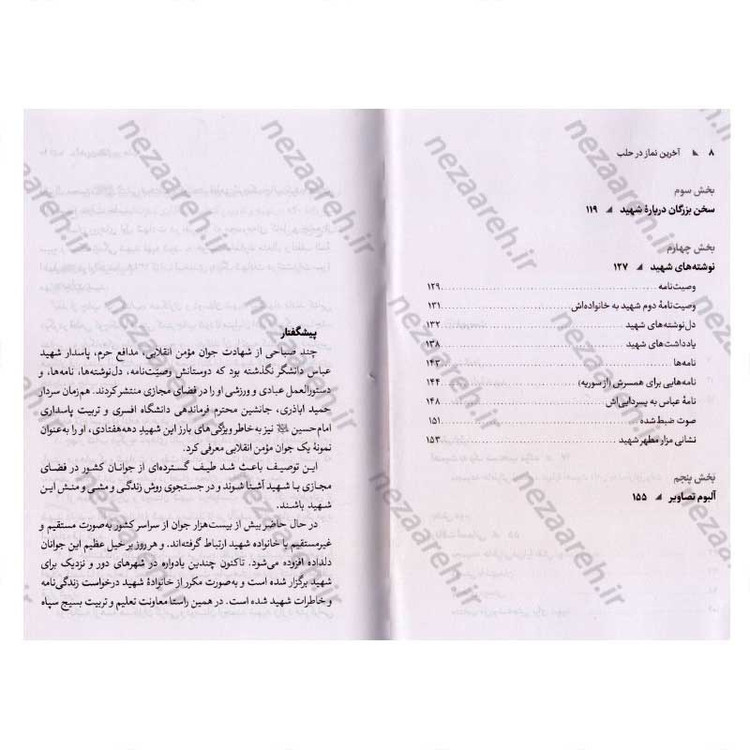 ۸ ◢ آخرین نماز در حلب
بخش سوم
سخن بزرگان دربارهٔ شهید ◢ ۱۱۹
بخش چهارم
نوشته‌های شهید ◢ ۱۲۷
وصیت‌نامه ........ ۱۲۹
وصیت‌نامهٔ دوم شهید به خانواده‌اش ........ ۱۳۱
دل‌نوشته‌های شهید ........ ۱۳۲
یادداشت‌های شهید ........ ۱۳۸
نامه‌ها ........ ۱۴۳
نامه‌هایی برای همسرش (از سوریه) ........ ۱۴۴
نامهٔ عباس به پسردایی‌اش ........ ۱۴۸
صوت ضبط‌شده ........ ۱۵۱
نشانی مزار مطهر شهید ........ ۱۵۳
بخش پنجم
آلبوم تصاویر ◢ ۱۵۵
پیشگفتار
چند صباحی از شهادت جوان مؤمن انقلابی، مدافع حرم، پاسدار شهید
عباس دانشگر نگذشته بود که دوستانش وصیت‌نامه، دل‌نوشته‌ها، نامه‌ها، و
دستورالعمل عبادی و ورزشی او را در فضای مجازی منتشر کردند. هم‌زمان سردار
حمید اباذری، جانشین محترم فرماندهی دانشگاه افسری و تربیت پاسداری
امام‌حسین ﷷ نیز به‌خاطر ویژگی‌های بارز این شهیدِ دهه‌هفتادی، او را به‌عنوان
نمونهٔ یک جوان مؤمن انقلابی معرفی کرد.
این توصیف باعث شد طیف گسترده‌ای از جوانان کشور در فضای
مجازی با شهید آشنا شوند و در جستجوی روش زندگی و مشی و منش این
شهید باشند.
در حال حاضر بیش از بیست‌هزار جوان از سراسر کشور به‌صورت مستقیم و
غیرمستقیم با خانواده شهید ارتباط گرفته‌اند. و هر روز بر خیل عظیم این جوانان
دلداده افزوده می‌شود. تاکنون چندین یادواره در شهرهای دور و نزدیک برای
شهید برگزار شده است و به‌صورت مکرر از خانوادهٔ شهید درخواست زندگی‌نامه
و خاطرات شهید شده است. در همین راستا معاونت تعلیم و تربیت بسیج سپاه
nezaareh.ir